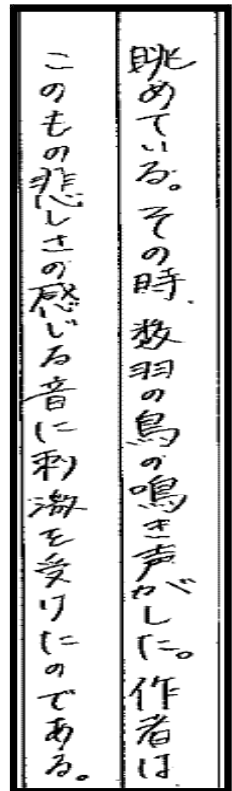 眺めている。その時、数羽の鳥の鳴き声がした。作者は
このもの悲しさの感じる音に刺激を受けたのである。